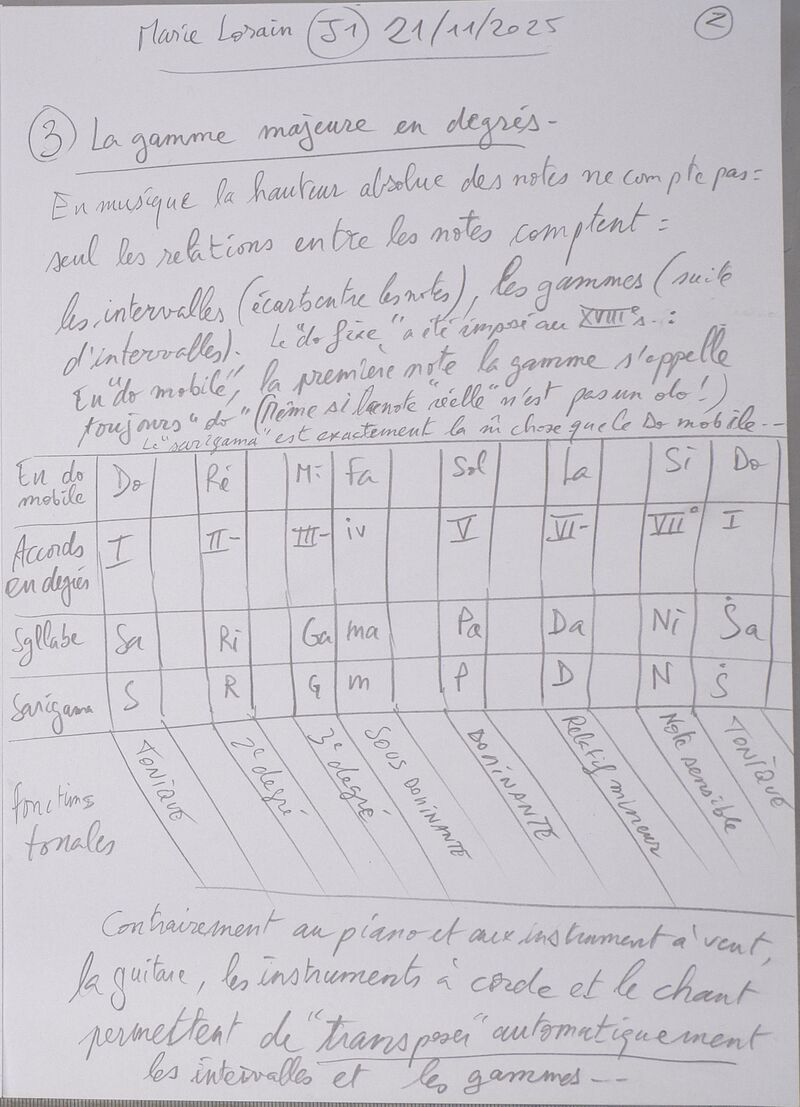 Marie Lorain J1 21/11/2025
2
3 La gamme majeure en degrés-
En musique la hauteur absolue des notes ne compte pas=
seul les relations entre les notes comptent =
les intervalles (écarts entre les notes), les gammes (suite
d'intervalles). Le "do fixe" a été imposé au XVIIIe s...:
En "do mobile", la première note la gamme s'appelle
toujours "do" (Même si la note "réelle" n'est pas un do!)
Le "sarigama" est exactement la m̂ chose que le Do mobile--
En do mobile Do Ré Mi Fa Sol La Si Do
Accords en degrés I II- III- iv V VI- VII° I
Syllabe Sa Ri Ga ma Pa Da Ni Ṡa
Sarigama S R G m P D N Ṡ
fonctions tonales TONIQUE 2e degré 3e degré SOUS DOMINANTE DOMINANTE Relatif mineur Note sensible TONIQUE
Contrairement au piano et aux instrument à vent,
la guitare, les instruments à corde et le chant
permettent de "transposer" automatiquement
les intervalles et les gammes---